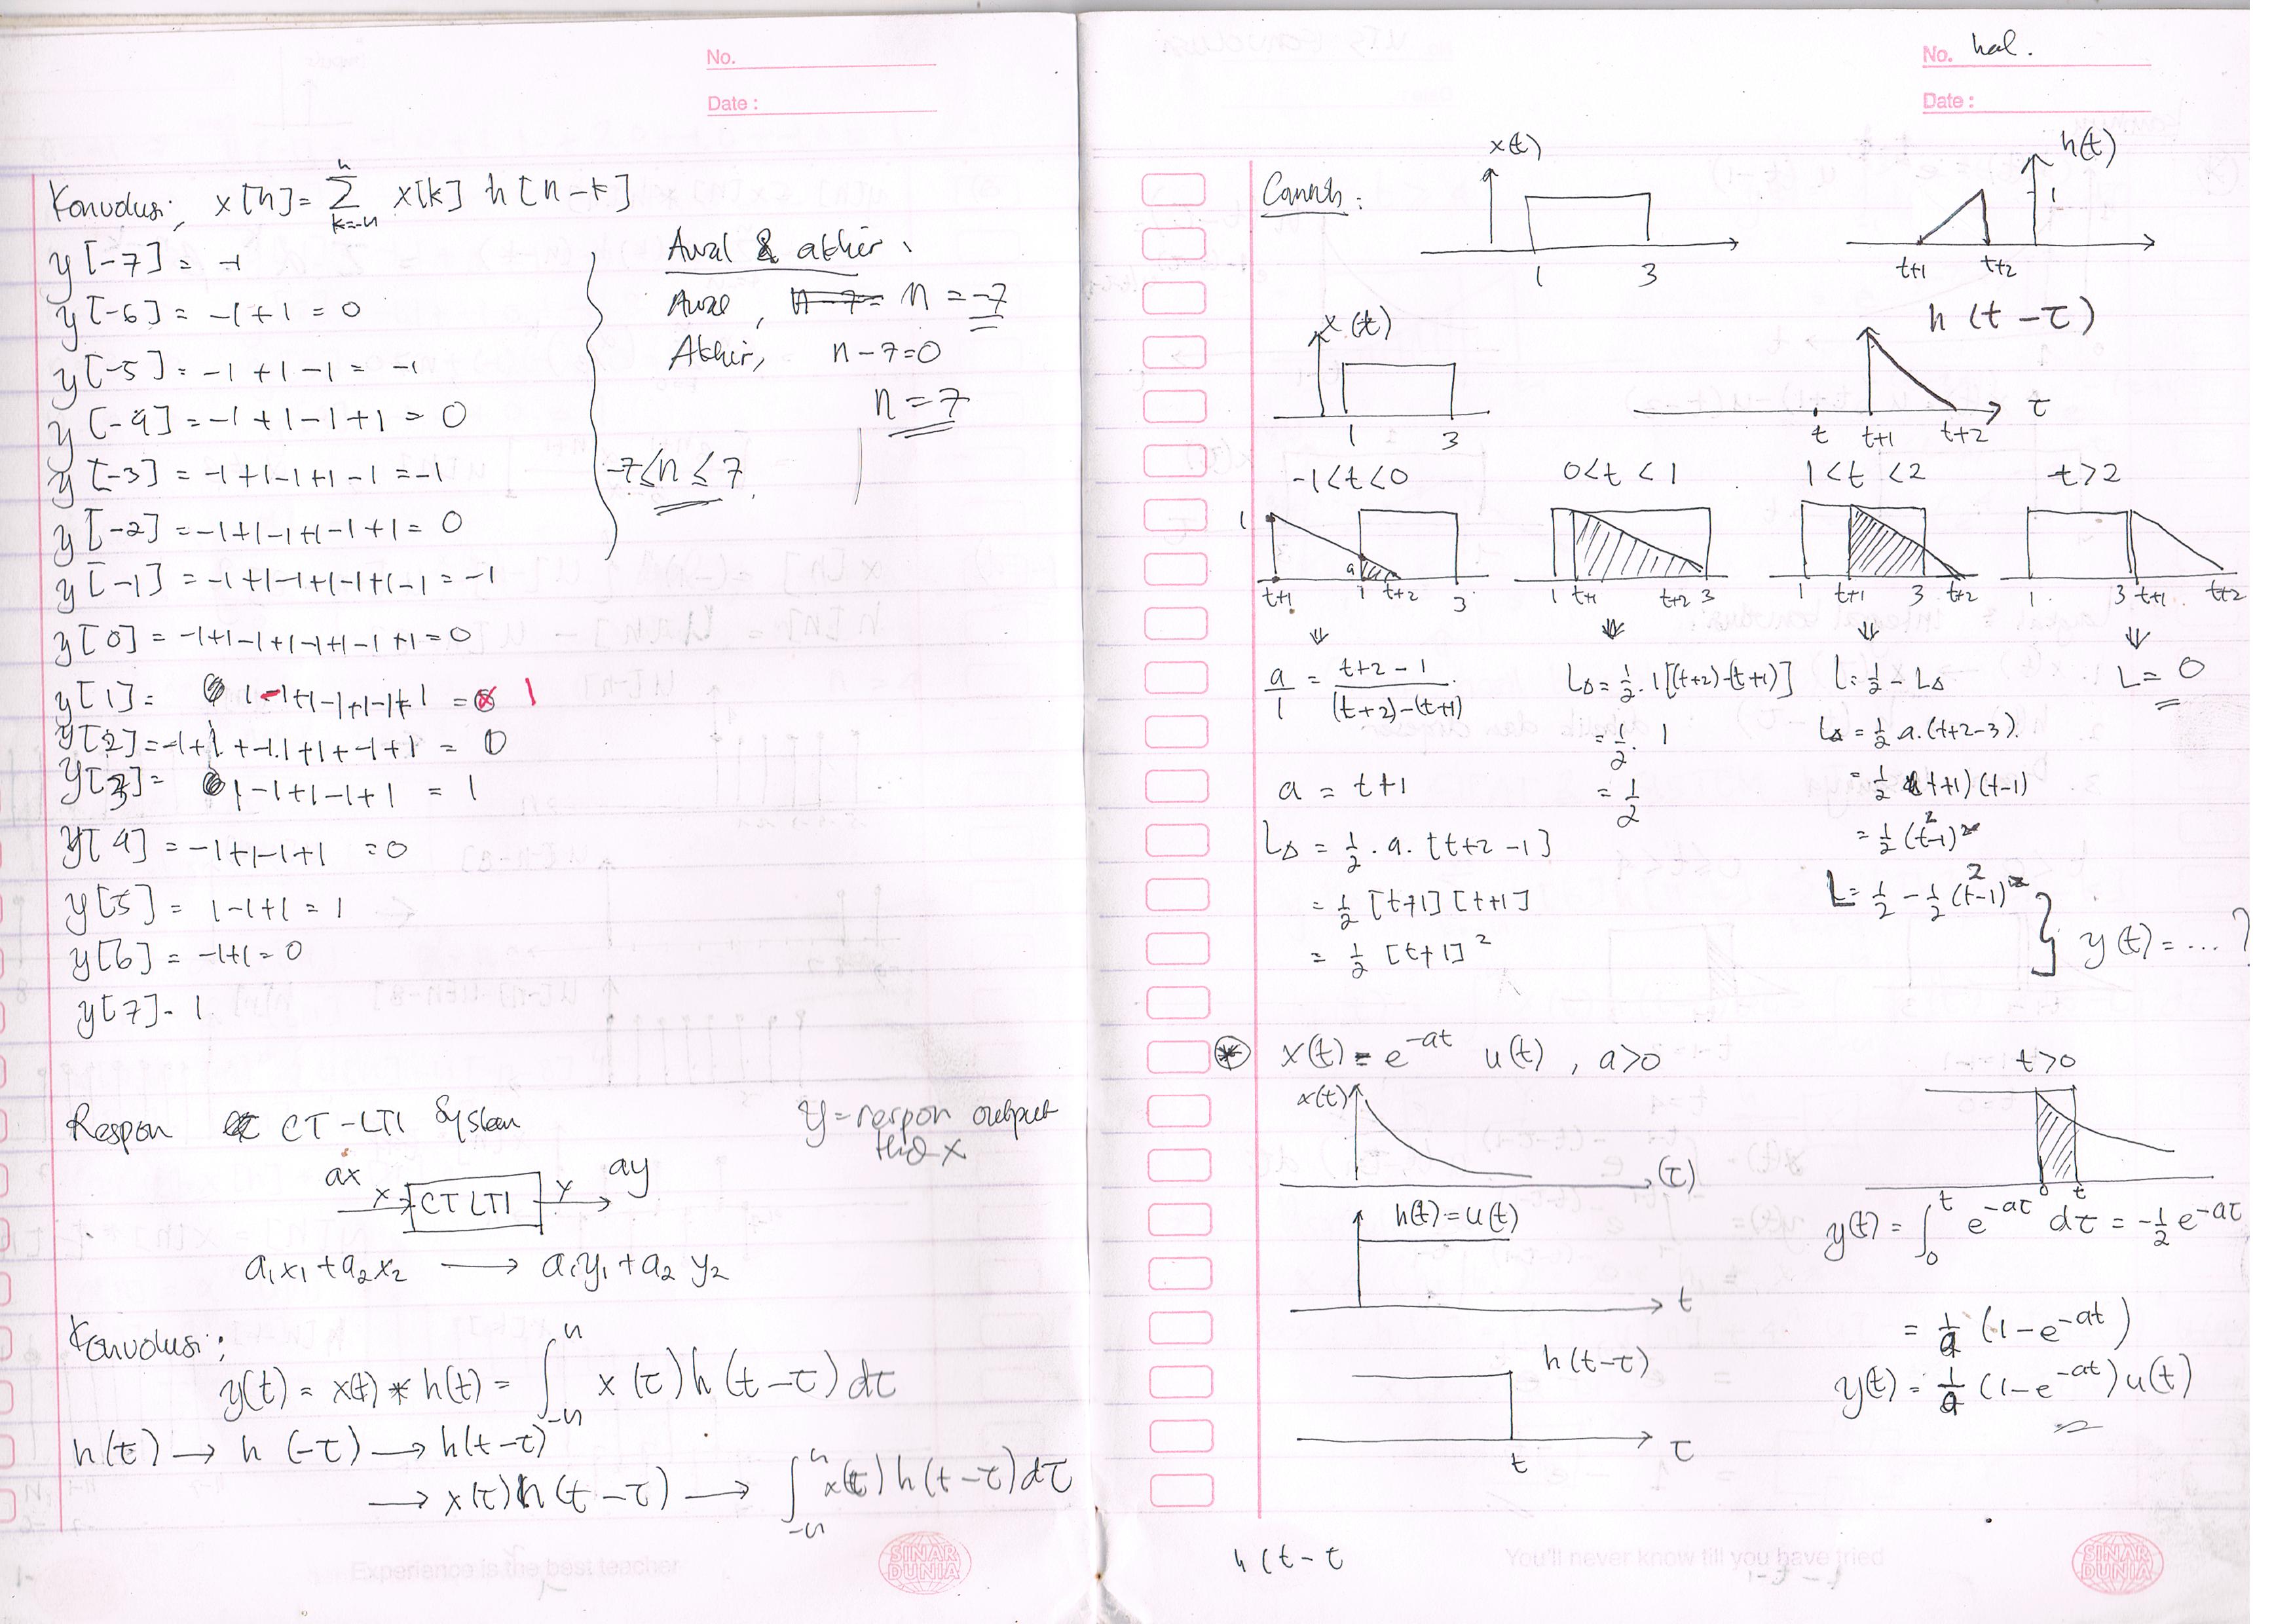 No.
Date :
Konvolusi, x[n] = Σ k=-n n x[k] h[n-k]
y[-7] = -1
y[-6] = -1+1 = 0
y[-5] = -1+1-1 = -1
y[-4] = -1+1-1+1 = 0
y[-3] = -1+1-1+1-1 = -1
y[-2] = -1+1-1+1-1+1 = 0
y[-1] = -1+1-1+1-1+1-1 = -1
y[0] = -1+1-1+1-1+1-1+1 = 0
y[1] = 1-1+1-1+1-1+1 = 1
y[2] = -1+1+-1.1+1+-1+1 = 0
y[3] = 1-1+1-1+1 = 1
y[4] = -1+1-1+1 = 0
y[5] = 1-1+1 = 1
y[6] = -1+1 = 0
y[7] = 1
Awal & akhir,
Awal, n = -7
Akhir, n-7=0
n = 7
-7≤n≤7
Respon CT-LTI System
y = respon output
thd x
ax ay
x CT LTI y
a₁x₁+a₂x₂ → a₁y₁+a₂y₂
Konvolusi:
y(t) = x(t) * h(t) = ∫ -n n x(τ)h(t-τ)dτ
h(τ) → h(-τ) → h(t-τ)
→ x(τ)h(t-τ) → ∫ -n n x(τ)h(t-τ)dτ
Experience is the best teacher
SINAR DUNIA
No. hal.
Date :
Contoh :
x(t)
1 3
h(t)
1
t+1 t+2
x(t)
1 3
h(t-τ)
t t+1 t+2 τ
-1<t<0 0<t<1 1<t<2 t>2
1 a
t+1 1 t+2 3
1 t+1 t+2 3
1 t+1 3 t+2
1 3 t+1 t+2
a/1 = (t+2-1)/((t+2)-(t+1))
a = t+1
LΔ = 1/2 . a. [t+2-1]
= 1/2 [t+1][t+1]
= 1/2 [t+1]²
LΔ = 1/2 . 1[(t+2)-(t+1)]
= 1/2 . 1
= 1/2
L = 1/2 - LΔ
LΔ = 1/2 a.(t+2-3)
= 1/2 (t+1)(t-1)
= 1/2 (t²-1)
L = 1/2 - 1/2 (t²-1)
L = 0
y(t) = ... ?
* x(t) = e^-at u(t), a>0
x(t)
(τ)
h(t)=u(t)
t
h(t-τ)
t τ
t>0
0 t
y(t) = ∫₀ᵗ e^-aτ dτ = -1/2 e^-aτ
= 1/a (1-e^-at)
y(t) = 1/a (1-e^-at)u(t)
h(t-τ
You'll never know till you have tried
SINAR DUNIA